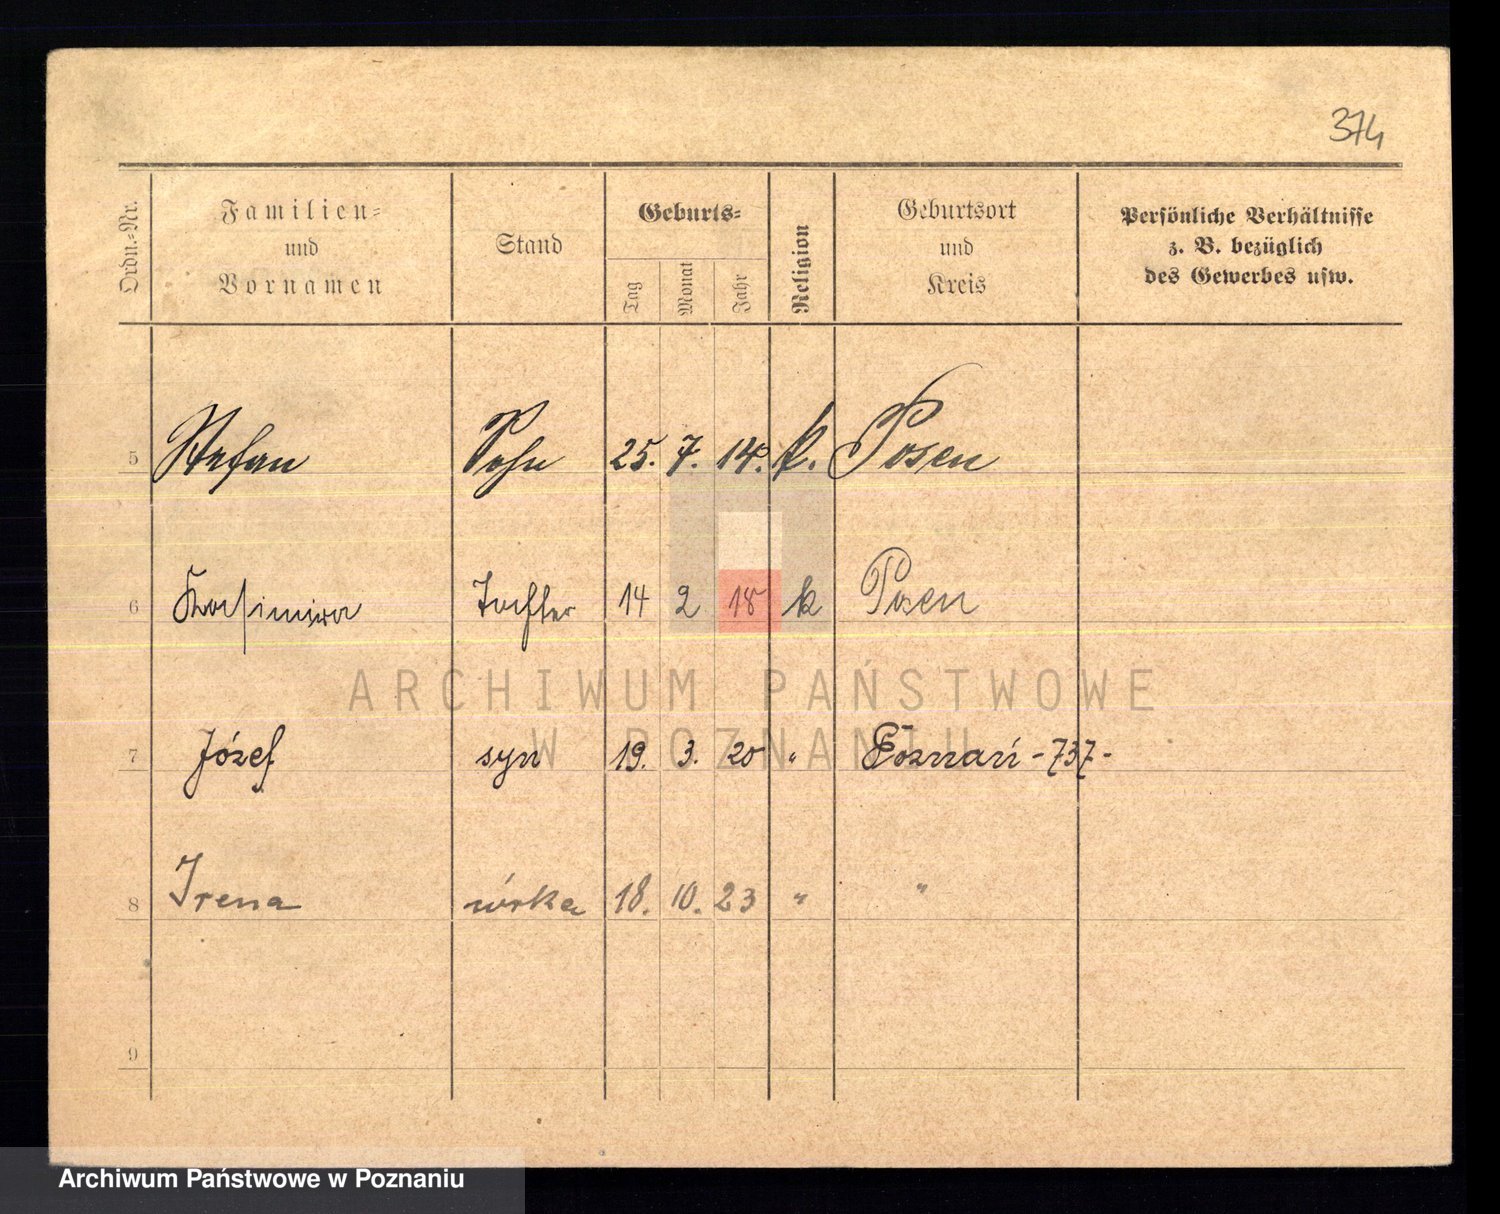 374
Ordn.-Nr.
Familien-
und
Vornamen
Stand
Geburts-
Tag
Monat
Jahr
Religion
Geburtsort
und
Kreis
Persönliche Verhältnisse
z. B. bezüglich
des Gewerbes usw.
5 Stefan Sohn 25. 7. 14. k. Posen
6 Kasimira Tochter 14 2 18 k Posen
ARCHIWUM PAŃSTWOWE
W POZNANIU
7 Józef syn 19. 3. 20 " Poznań -737-
8 Irena córka 18. 10. 23 " "
9
Archiwum Państwowe w Poznaniu